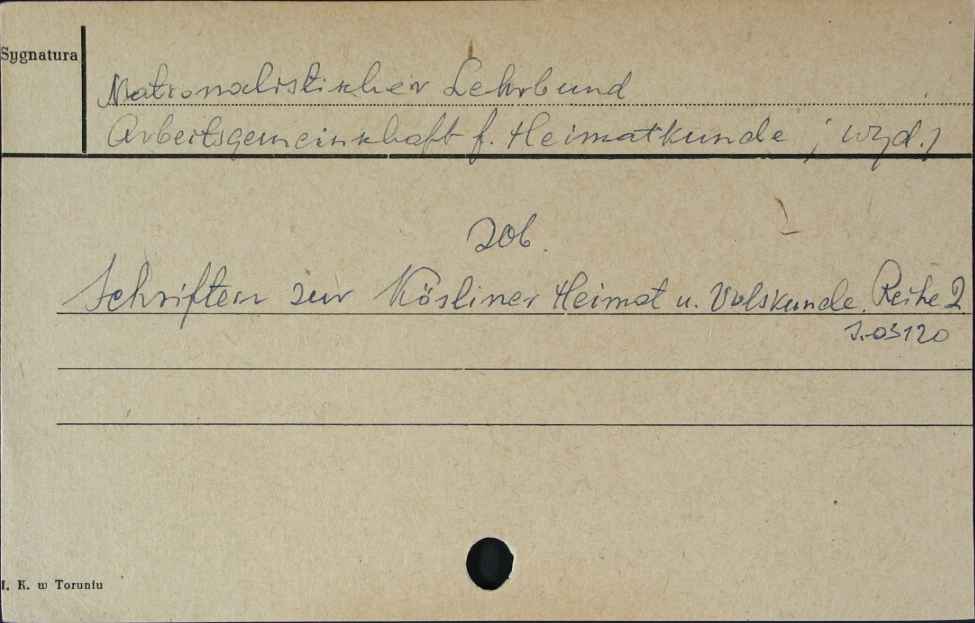 Sygnatura
Nationalistischer Lehrbund
Arbeitsgemeinschaft f. Heimatkunde ; wyd.)
zob.
Schriften zur Kösliner Heimat u. Volskunde. Reihe 2
J.-03120
I. K. w Toruniu